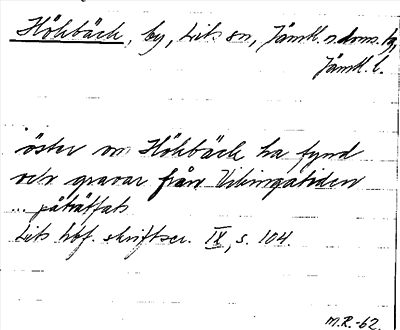 Hökbäck, by, Lits sn, Jämtl. n. doms. tg,
Jämtl. l.
öster om Hökbäck ha fynd
och gravar från Vikingatiden
... påträffats
Lits hbf. skriftser. IX, s. 104.
M.R.-62.